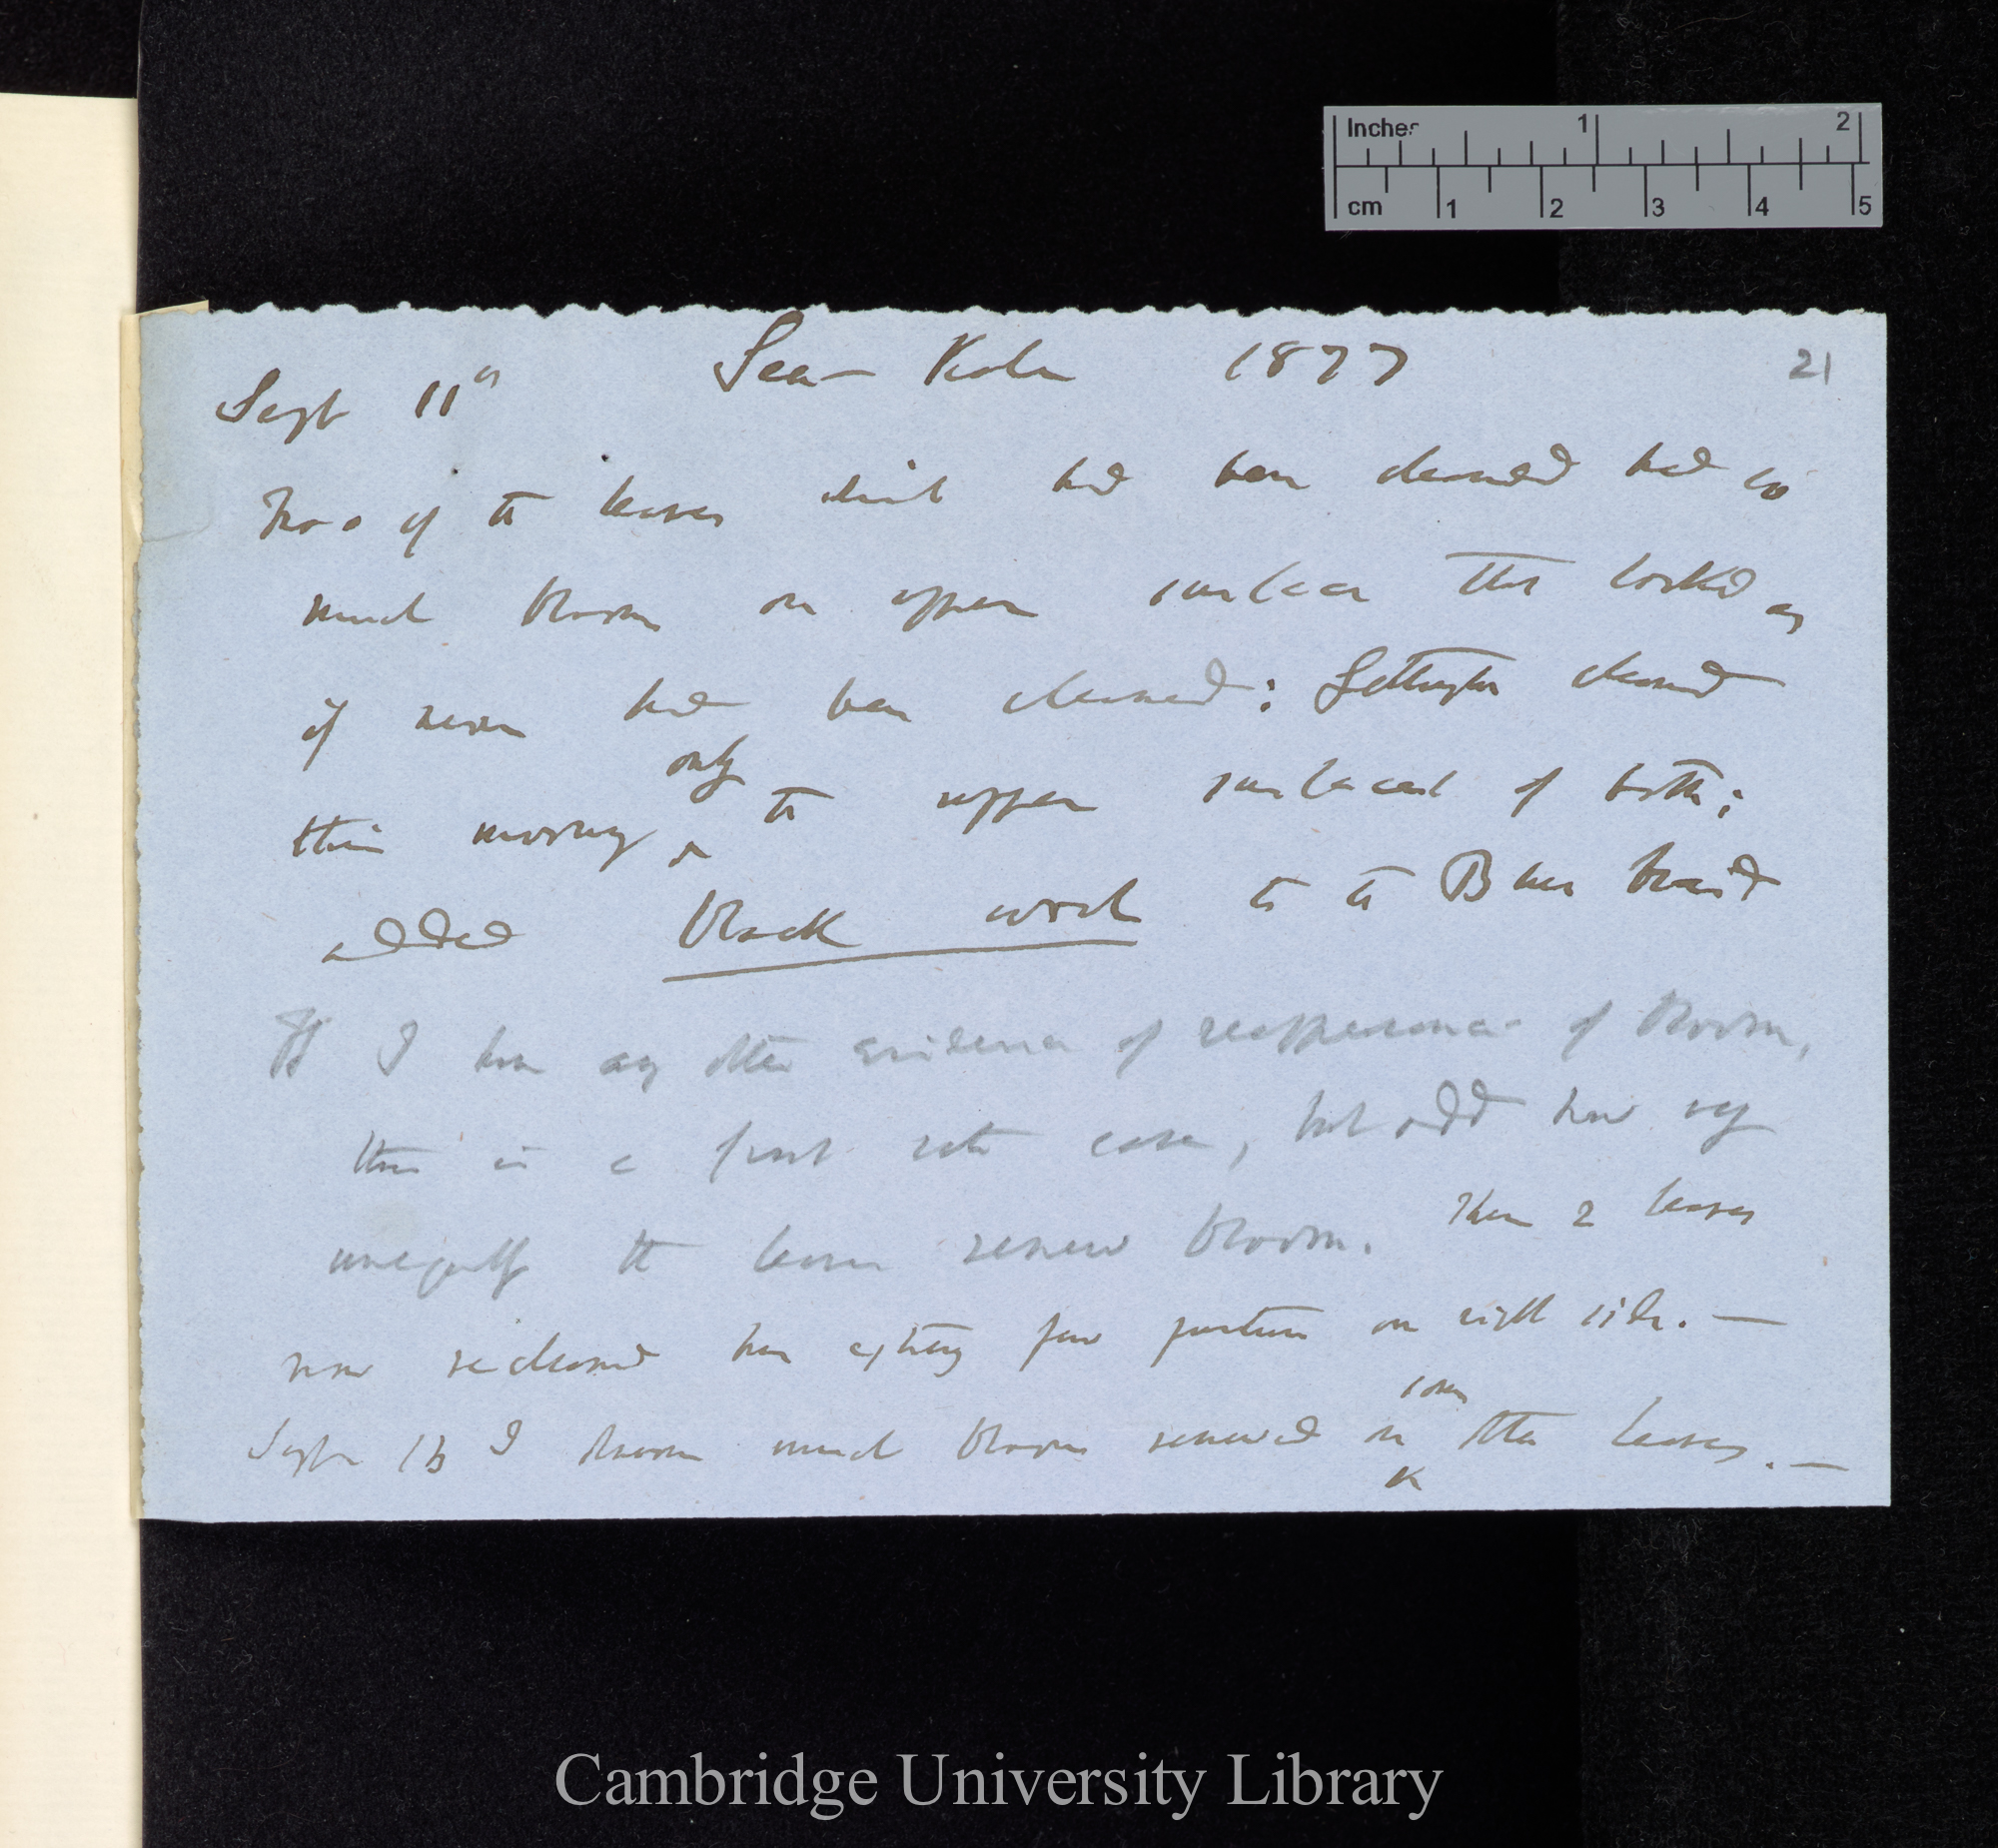 Inches 1 2
cm 1 2 3 4 5
Sea-Kale 1877
21
Sept 11"
Two of the leaves which had been cleaned had so
much bloom on upper surface that looked as
if never had been cleaned: cleaned
this morning only the upper surfaces of both;
added black wool to the Blue braid
If I have any other evidence of reappearance of bloom,
this is a first rate case, but add how very
unequally the leaves renew bloom. These 2 leaves
now recleaned have extra few on right side.—
Sept 13 I much bloom renewed on some other leaves.—
Cambridge University Library